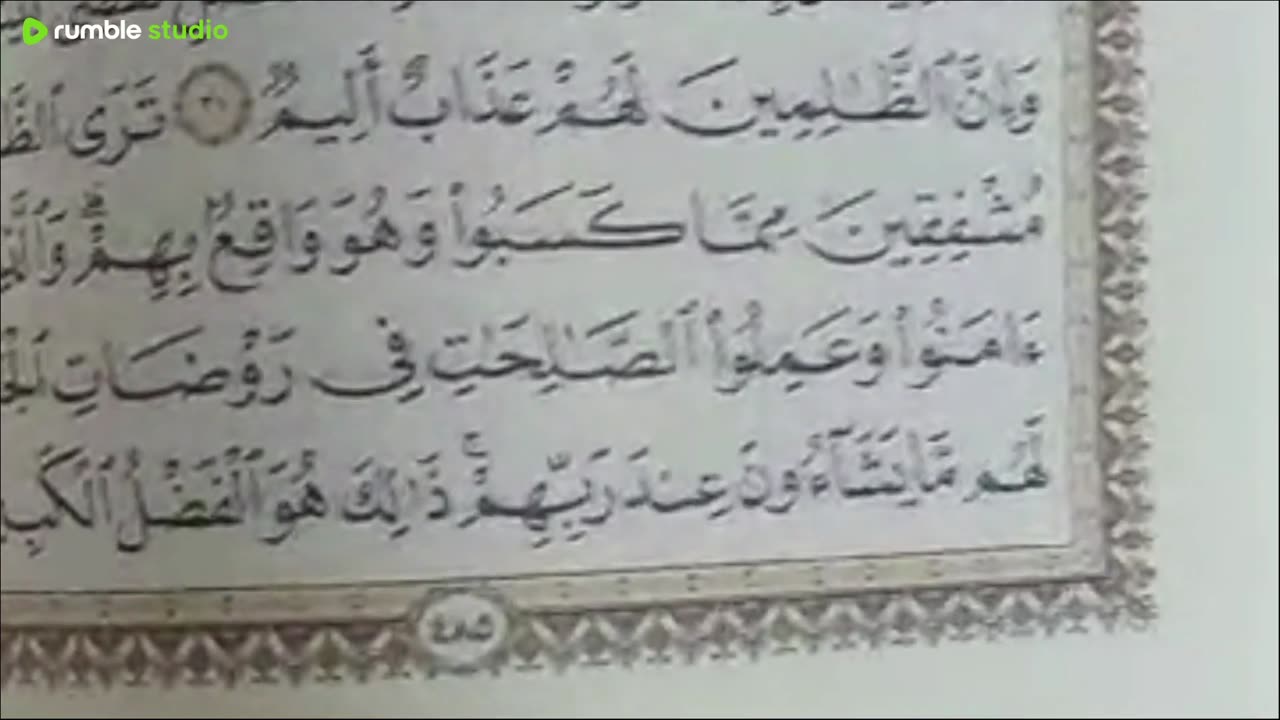 rumble studio
وَإِنَّ ٱلظَّـٰلِمِينَ لَهُمْ عَذَابٌ أَلِيمٌ ٢١ تَرَى
مُشْفِقِينَ مِمَّا كَسَبُوا۟ وَهُوَ وَاقِعٌۢ بِهِمْ ۗ
ءَامَنُوا۟ وَعَمِلُوا۟ ٱلصَّـٰلِحَـٰتِ فِى رَوْضَاتِ
لَهُم مَّا يَشَآءُونَ عِندَ رَبِّهِمْ ۚ ذَٰلِكَ هُوَ ٱلْفَضْلُ
٤٨٥